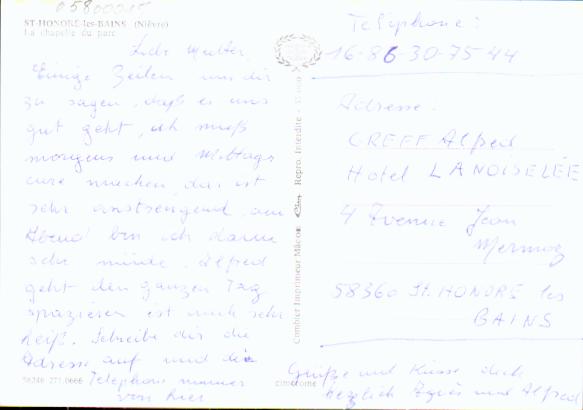 05800015
ST-HONORÉ-les-BAINS (Nièvre)
La chapelle du parc
Liebe Mutter,
Einige Zeilen um dir
zu sagen, daß es uns
gut geht, ich muß
morgens und Mittags
cure machen, das ist
sehr anstrengend, am
Abend bin ich dann
sehr müde. Alfred
geht den ganzen Tag
spazieren ist auch sehr
heiß. Schreibe dir die
Adresse auf und die
Telephone nummer
von hier
58246 271.0666
Combier Imprimeur Mâcon
Repro. Interdite
cim
Telephone:
16-86-30-75-44
Adresse.
GREFF Alfred
Hotel LANOISELÉE
4 Avenue Jean
Mermoz
58360 St. HONORÉ les
BAINS
Grüße und Küsse dich
Herzlich Agnès und Alfred